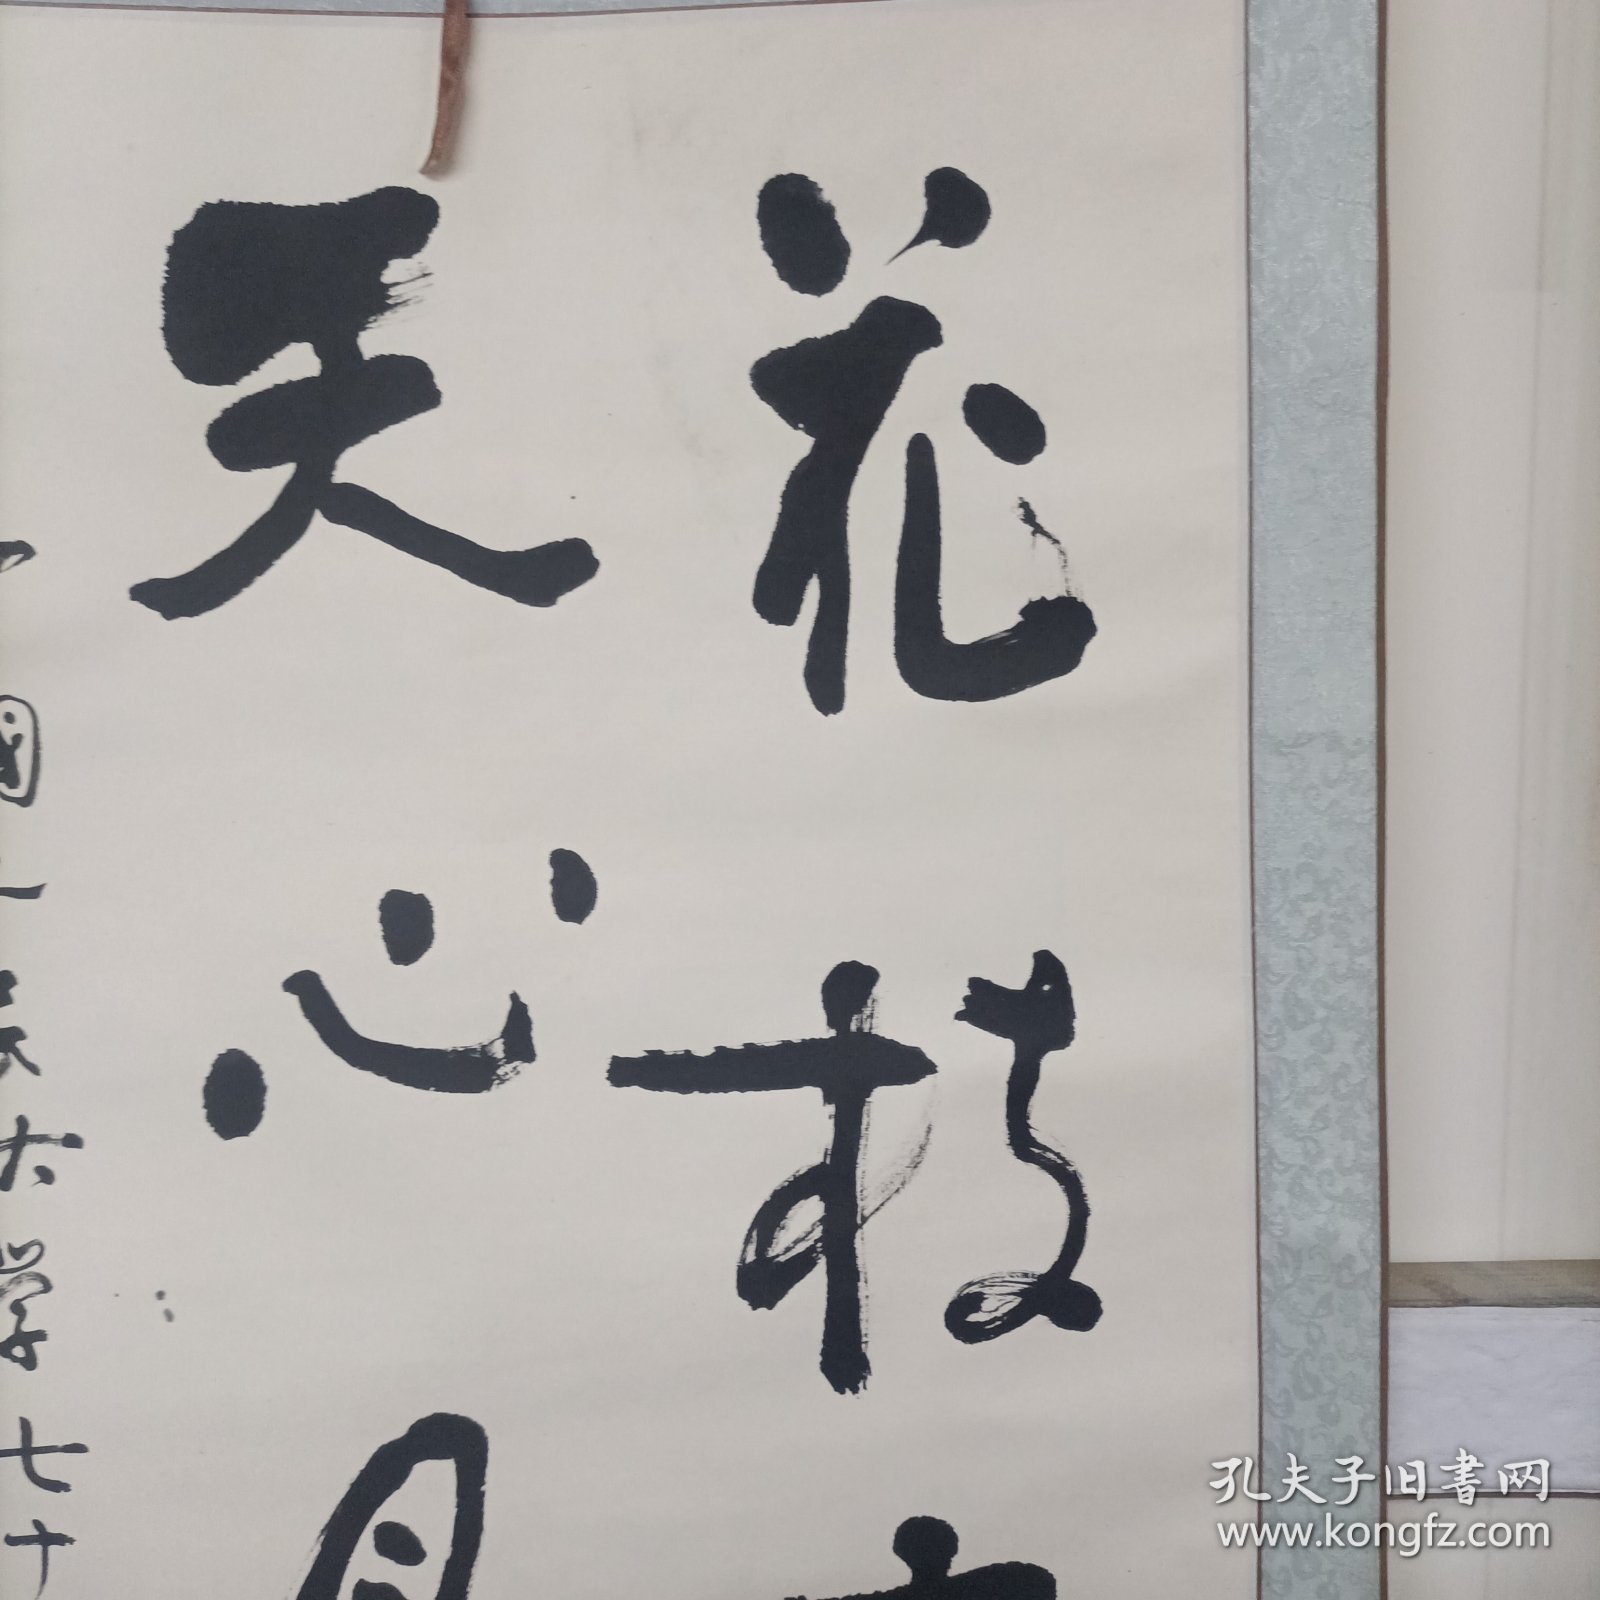 花枝
天心月
國人民大學七十
孔夫子旧书网
www.kongfz.com